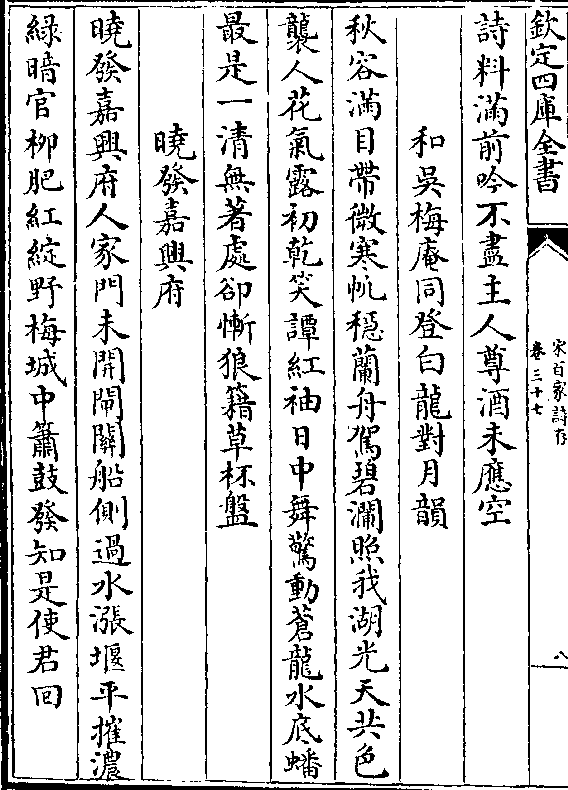 欽定四庫全書
宋百家詩存
卷三十七
八
詩料滿前吟不盡主人尊酒未應空
和吳梅庵同登白龍對月韻
秋容滿目帶微寒帆穩蘭舟駕碧瀾照我湖光天共色
襲人花氣露初乾笑譚紅袖日中舞驚動蒼龍水底蟠
最是一清無著處卻慚狼籍草杯盤
曉發嘉興府
曉發嘉興府人家門未開閘關船側過水漲堰平摧濃
緑暗官柳肥紅綻野梅城中簫鼓發知是使君回